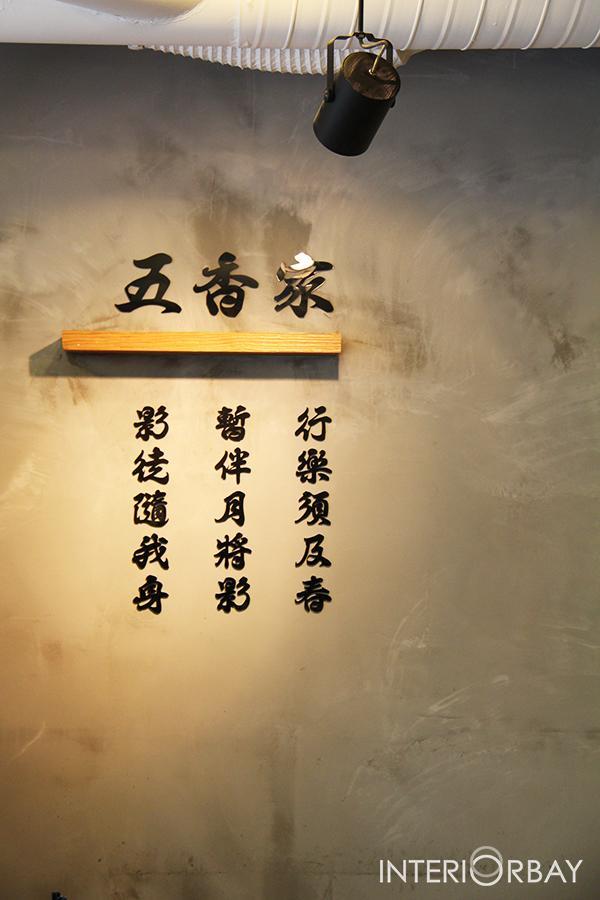 五香家
影徒隨我身
暫伴月將影
行樂須及春
INTERIORBAY